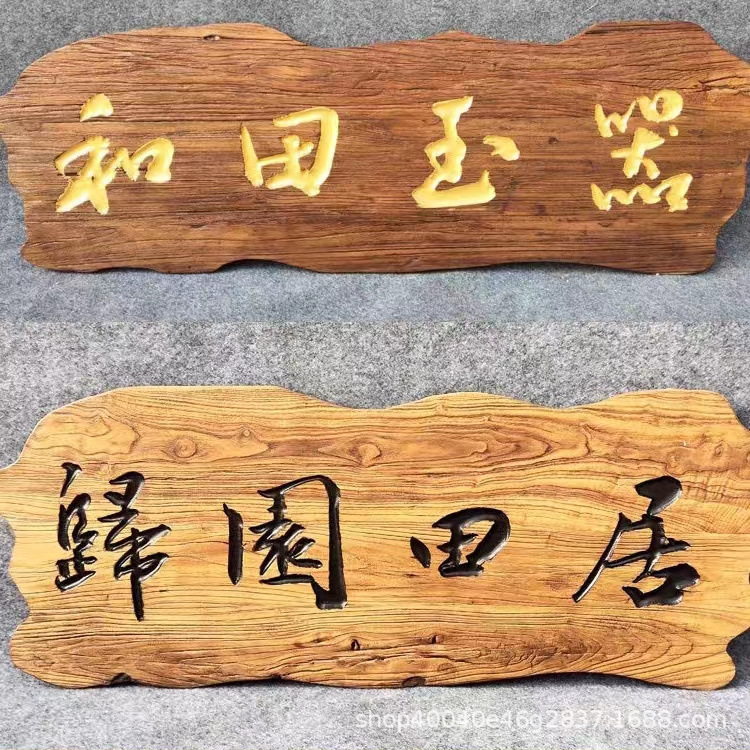 和田玉器
歸園田居
shop40040e46g2837.1688.com